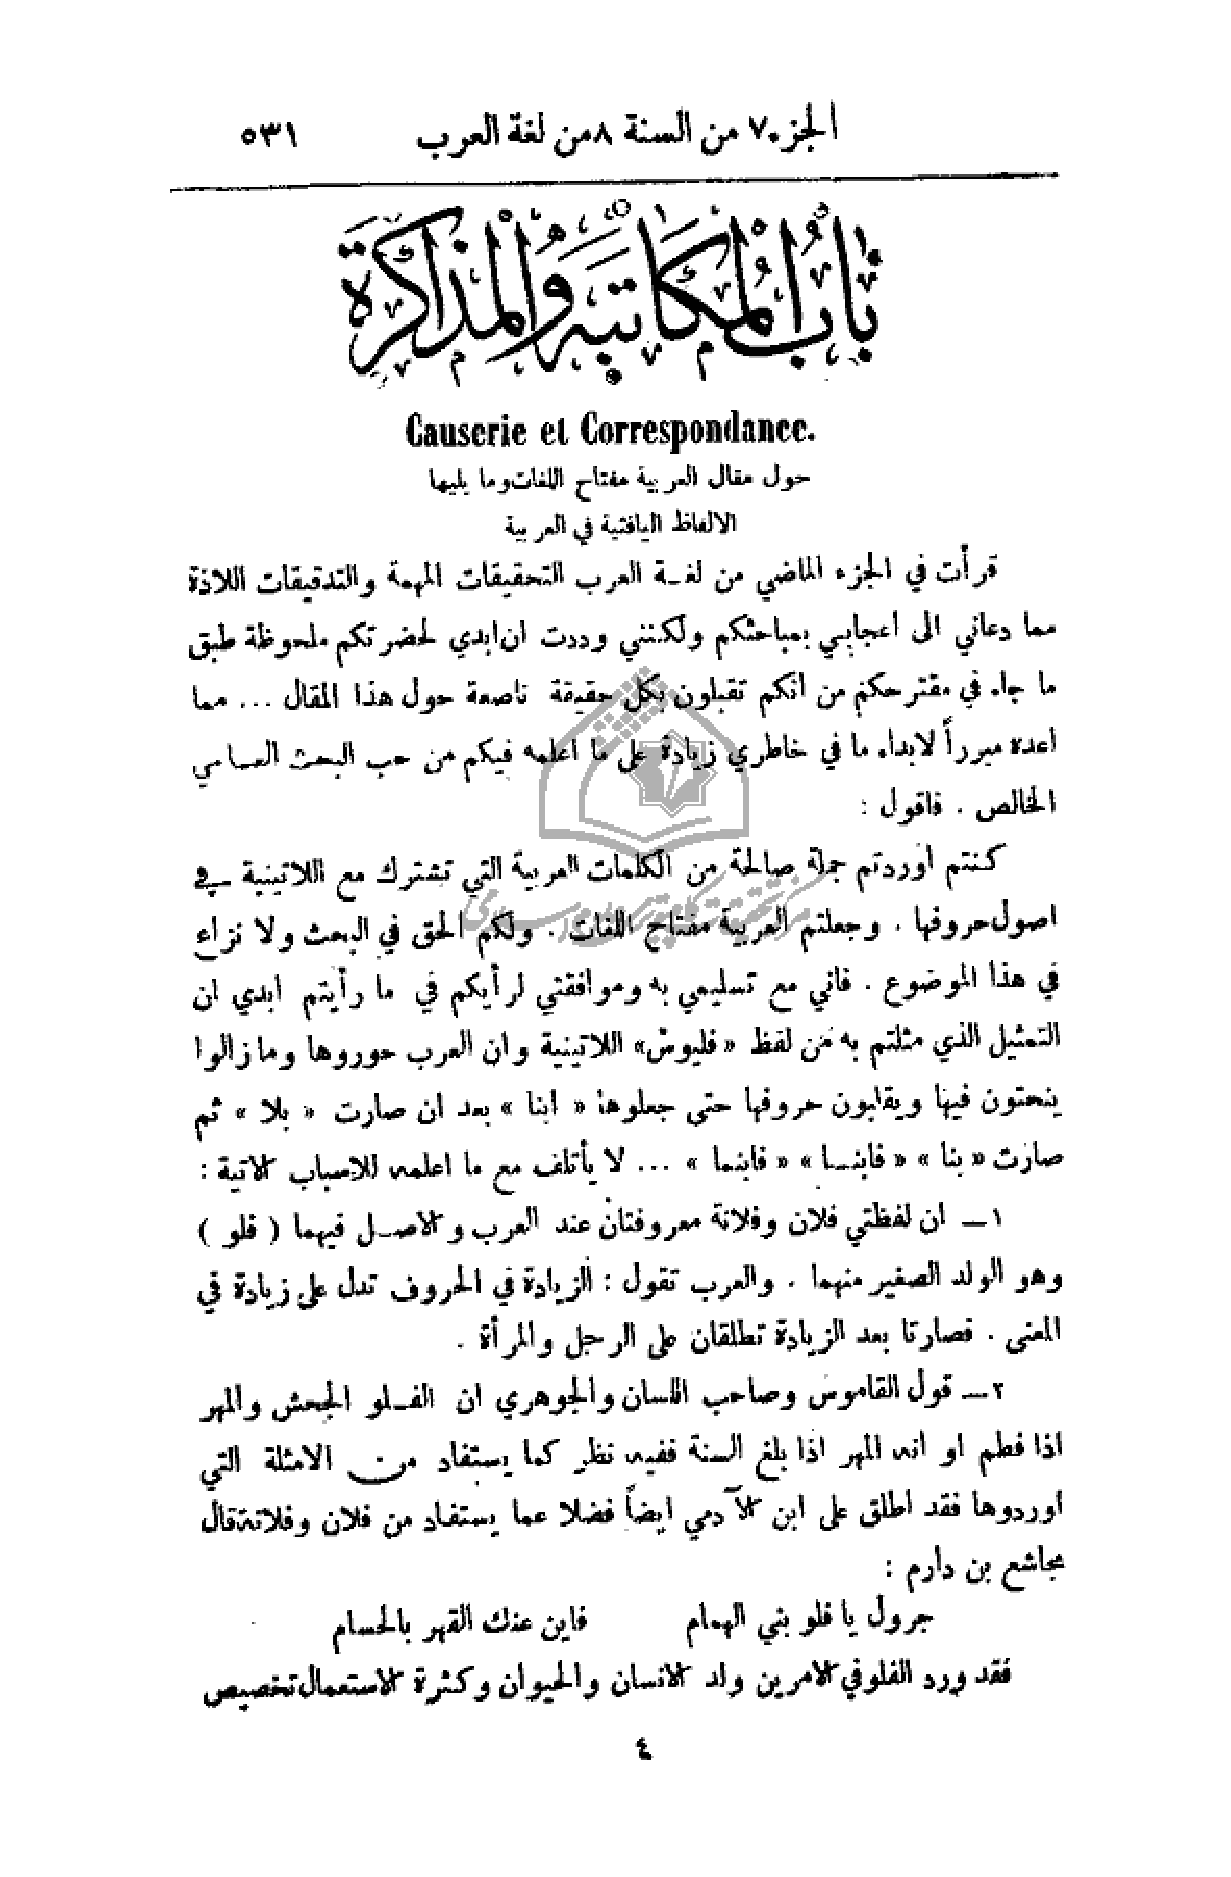 الجزء ٧ من السنة ٨ من لغة العرب ٥٣١
باب المكاتبة والمذاكرة
Causerie et Correspondance.
حول مقال العربية مفتاح اللغات وما يليها
الالفاظ اليافثية في العربية
قرأت في الجزء الماضي من لغـة العرب التحقيقات المهمة والتدقيقات اللاذة
مما دعاني الى اعجابي بمباحثكم ولكنني وددت ان ابدي لحضرتكم ملحوظة طبق
ما جاء في مقترحكم من انكم تقبلون بكل حقيقة ناصعة حول هذا المقال ... مما
اعده مبرراً لابداء ما في خاطري زيادة على ما اعلمه فيكم من حب البحث العلمي
الخالص . فاقول :
كنتم اوردتم جملة صالحة من الكلمات العربية التي تشترك مع اللاتينية في
اصول حروفها . وجعلتم العربية مفتاح اللغات . ولكم الحق في البحث ولا نزاع
في هذا الموضوع . فاني مع تسليمي به وموافقتي لرأيكم في ما رأيتم ابدي ان
التمثيل الذي مثلتم به من لفظ «فليوش» اللاتينية وان العرب حوروها وما زالوا
ينحتون فيها ويقلبون حروفها حتى جعلوها « ابنا » بعد ان صارت « بلا » ثم
صارت « بنا » « فابنـا » « فابنما » ... لا يأتلف مع ما اعلمه للاسباب الاتية :
١ـ ان لفظتي فلان وفلانة معروفتان عند العرب والاصـل فيهما ( فلو )
وهو الولد الصغير منهما . والعرب تقول : الزيادة في الحروف تدل على زيادة في
المعنى . فصارتا بعد الزيادة تطلقان على الرجل والمرأة .
٢ـ قول القاموس وصاحب اللسان والجوهري ان الفـلو الجحش والمهر
اذا فطم او انه المهر اذا بلغ السنة ففيه نظر كما يستفاد من الامثلة التي
اوردوها فقد اطلق على ابن الآدمي ايضاً فضلا عما يستفاد من فلان وفلانة قال
مجاشع بن دارم :
جرول يا فلو بني الهمام فاين عنك القهر بالحسام
فقد ورد الفلو في الامرين ولد الانسان والحيوان وكثرة الاستعمال تخصيص
٤